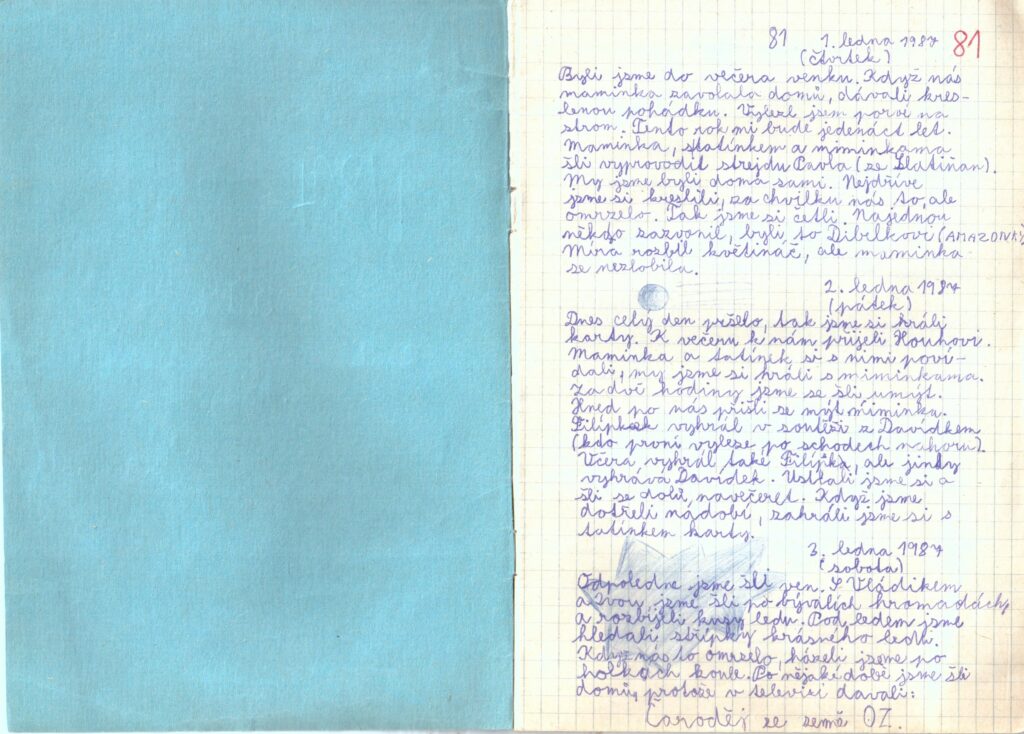 81 1. ledna 1987 81
(čtvrtek)
Byli jsme do večera venku. Když nás
maminka zavolala domů, dávali kres-
lenou pohádku. Vylezl jsem porvi na
strom. Tento rok mi bude jedenáct let.
Maminka, statínkem a miminkama
šli vyprovodit strejdu Pavla (ze Slatiňan).
My jsme byli doma sami. Nejdříve
jsme si kreslili, za chvilku nás to, ale
omrzelo. Tak jsme si četli. Najednou
někdo zazvonil, byli to Dibelkovi (AMAZONKY)
Míra rozbil květináč, ale maminka
se nezlobila.
2. ledna 1987
(pátek)
Dnes celý den pršelo, tak jsme si hráli
karty. K večeru k nám přijeli Houhovi.
Maminka a tatínek si s nimi poví-
dali, my jsme si hráli s miminkama.
Za dvě hodiny jsme se šli umýt.
Hned po nás přišli se mýt miminka.
Filípek vyhrál v soutěži z Davídkem
(kdo první vyleze po schodech nahoru).
Včera vyhrál také Filípka, ale jindy
vyhrává Davídek. Ustlali jsme si a
šli se dolů navečeret. Když jsme
dotřeli nádobí, zahráli jsme si s
tatínkem karty.
3. ledna 1987
(sobota)
Odpoledne jsme šli ven. S Vládíkem
a Ivou jsme šli po bývalích hromadách
a rozbíjeli kusy ledu. Pod ledem jsme
hledali střípky krásného ledu.
Když nás to omrzelo, házeli jseme po
holkách koule. Po nějaké době jsme šli
domů, protože v televizi davali:
Čaroděj ze země OZ.